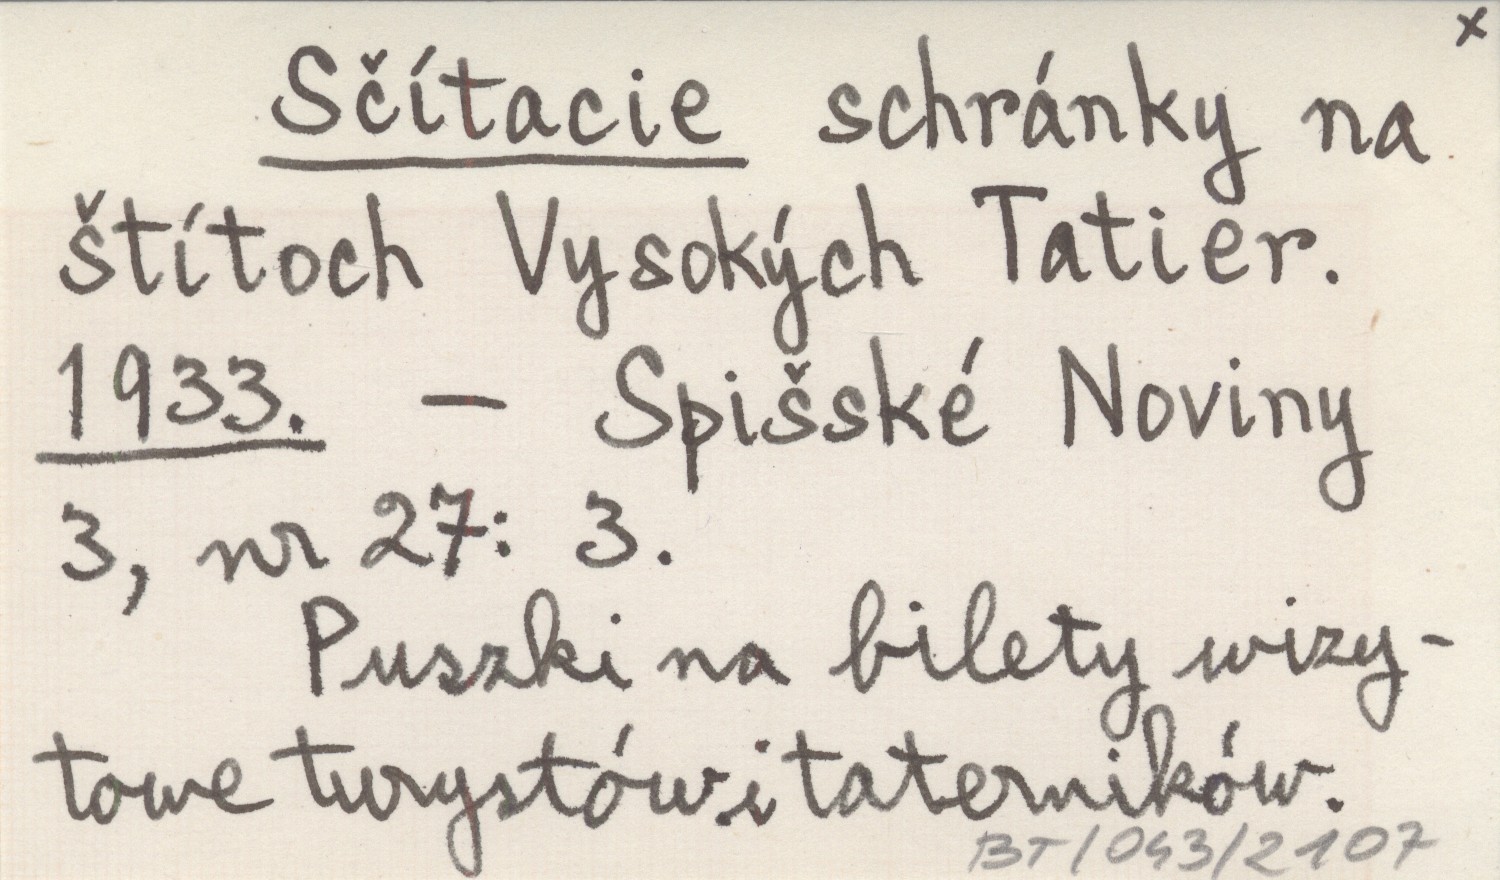 x
Sčítacie schránky na
štítoch Vysokých Tatier.
1933. — Spišské Noviny
3, nr 27: 3.
Puszki na bilety wizy-
towe turystów i taterników.
BT/043/2107